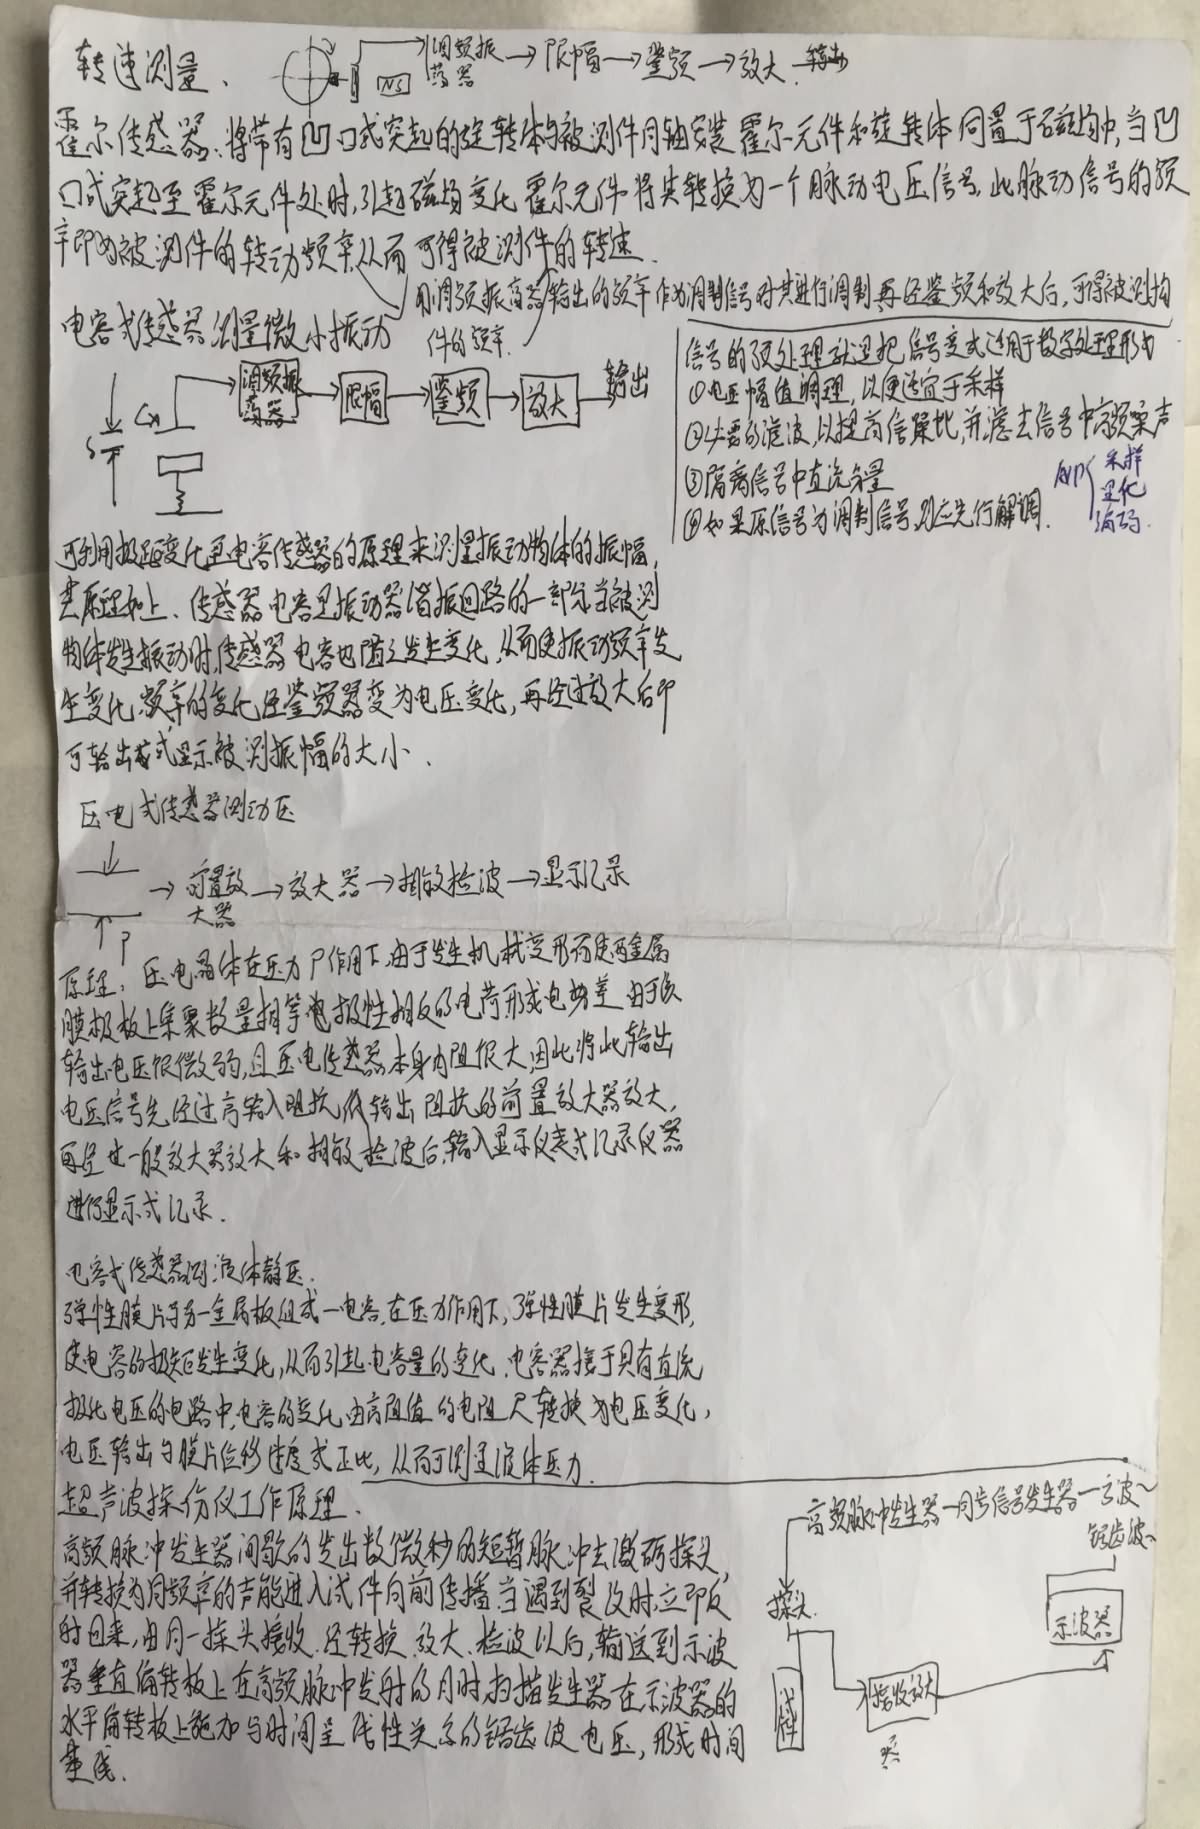 转速测量.
调频振荡器→限幅→鉴频→放大 输出
NS
霍尔传感器:将带有凹口式突起的旋转体与被测件同轴安装 霍尔元件和旋转体同置于磁场中,当凹
口式突起至霍尔元件处时,引起磁场变化 霍尔元件将其转换为一个脉动电压信号 此脉动信号的频
率即为被测件的转动频率,从而可得被测件的转速.
用调频振荡器输出的频率作为调制信号对其进行调制再经鉴频和放大后,可得被测构
件的频率.
电容式传感器测量微小振动
Cx 调频振荡器→限幅→鉴频→放大→输出
S
信号的预处理就是把信号变成适用于数字处理形式
①电压幅值调理,以便适宜于采样
②必要的滤波,以提高信噪比,并滤去信号中高频噪声
③隔离信号中直流分量
④如果原信号为调制信号,则应先行解调.
A/D 采样
量化
编码.
可利用极距变化型电容传感器的原理来测量振动物体的振幅,
其原理如上、传感器电容是振动器谐振回路的一部分当被测
物体发生振动时,传感器电容也随之发生变化,从而使振动频率发
生变化.频率的变化经鉴频器变为电压变化,再经过放大后即
可输出或显示被测振幅的大小.
压电式传感器测动压
→前置放大器→放大器→相敏检波→显示记录
P
原理:压电晶体在压力P作用下,由于发生机械变形而使两金属
膜极板上集聚数量相等电极性相反的电荷形成电势差 由于该
输出电压很微弱,且压电传感器本身内阻很大,因此将此输出
电压信号先经过高输入阻抗低输出阻抗的前置放大器放大,
再经过一般放大器放大和相敏检波后,输入显示仪表或记录仪器
进行显示或记录.
电容式传感器测液体静压.
弹性膜片与另一金属板组成一电容,在压力作用下,弹性膜片发生变形,
使电容的极矩发生变化,从而引起电容量的变化.电容器接于具有直流
极化电压的电路中,电容的变化由高阻值的电阻R转换为电压变化,
电压输出与膜片位移速度成正比,从而可测量液体压力.
超声波探伤仪工作原理.
高频脉冲发生器间歇的发出数微秒的短暂脉冲去激励探头,
并转换为同频率的声能进入试件向前传播,当遇到裂纹时,立即反
射回来,由同一探头接收.经转换.放大.检波以后,输送到示波
器垂直偏转板上在高频脉冲发射的同时,扫描发生器在示波器的
水平偏转板上施加与时间呈线性关系的锯齿波电压,形成时间
基线.
高频脉冲发生器—同步信号发生器—方波~
锯齿波~
探头.
示波器
试件
接收放大
器